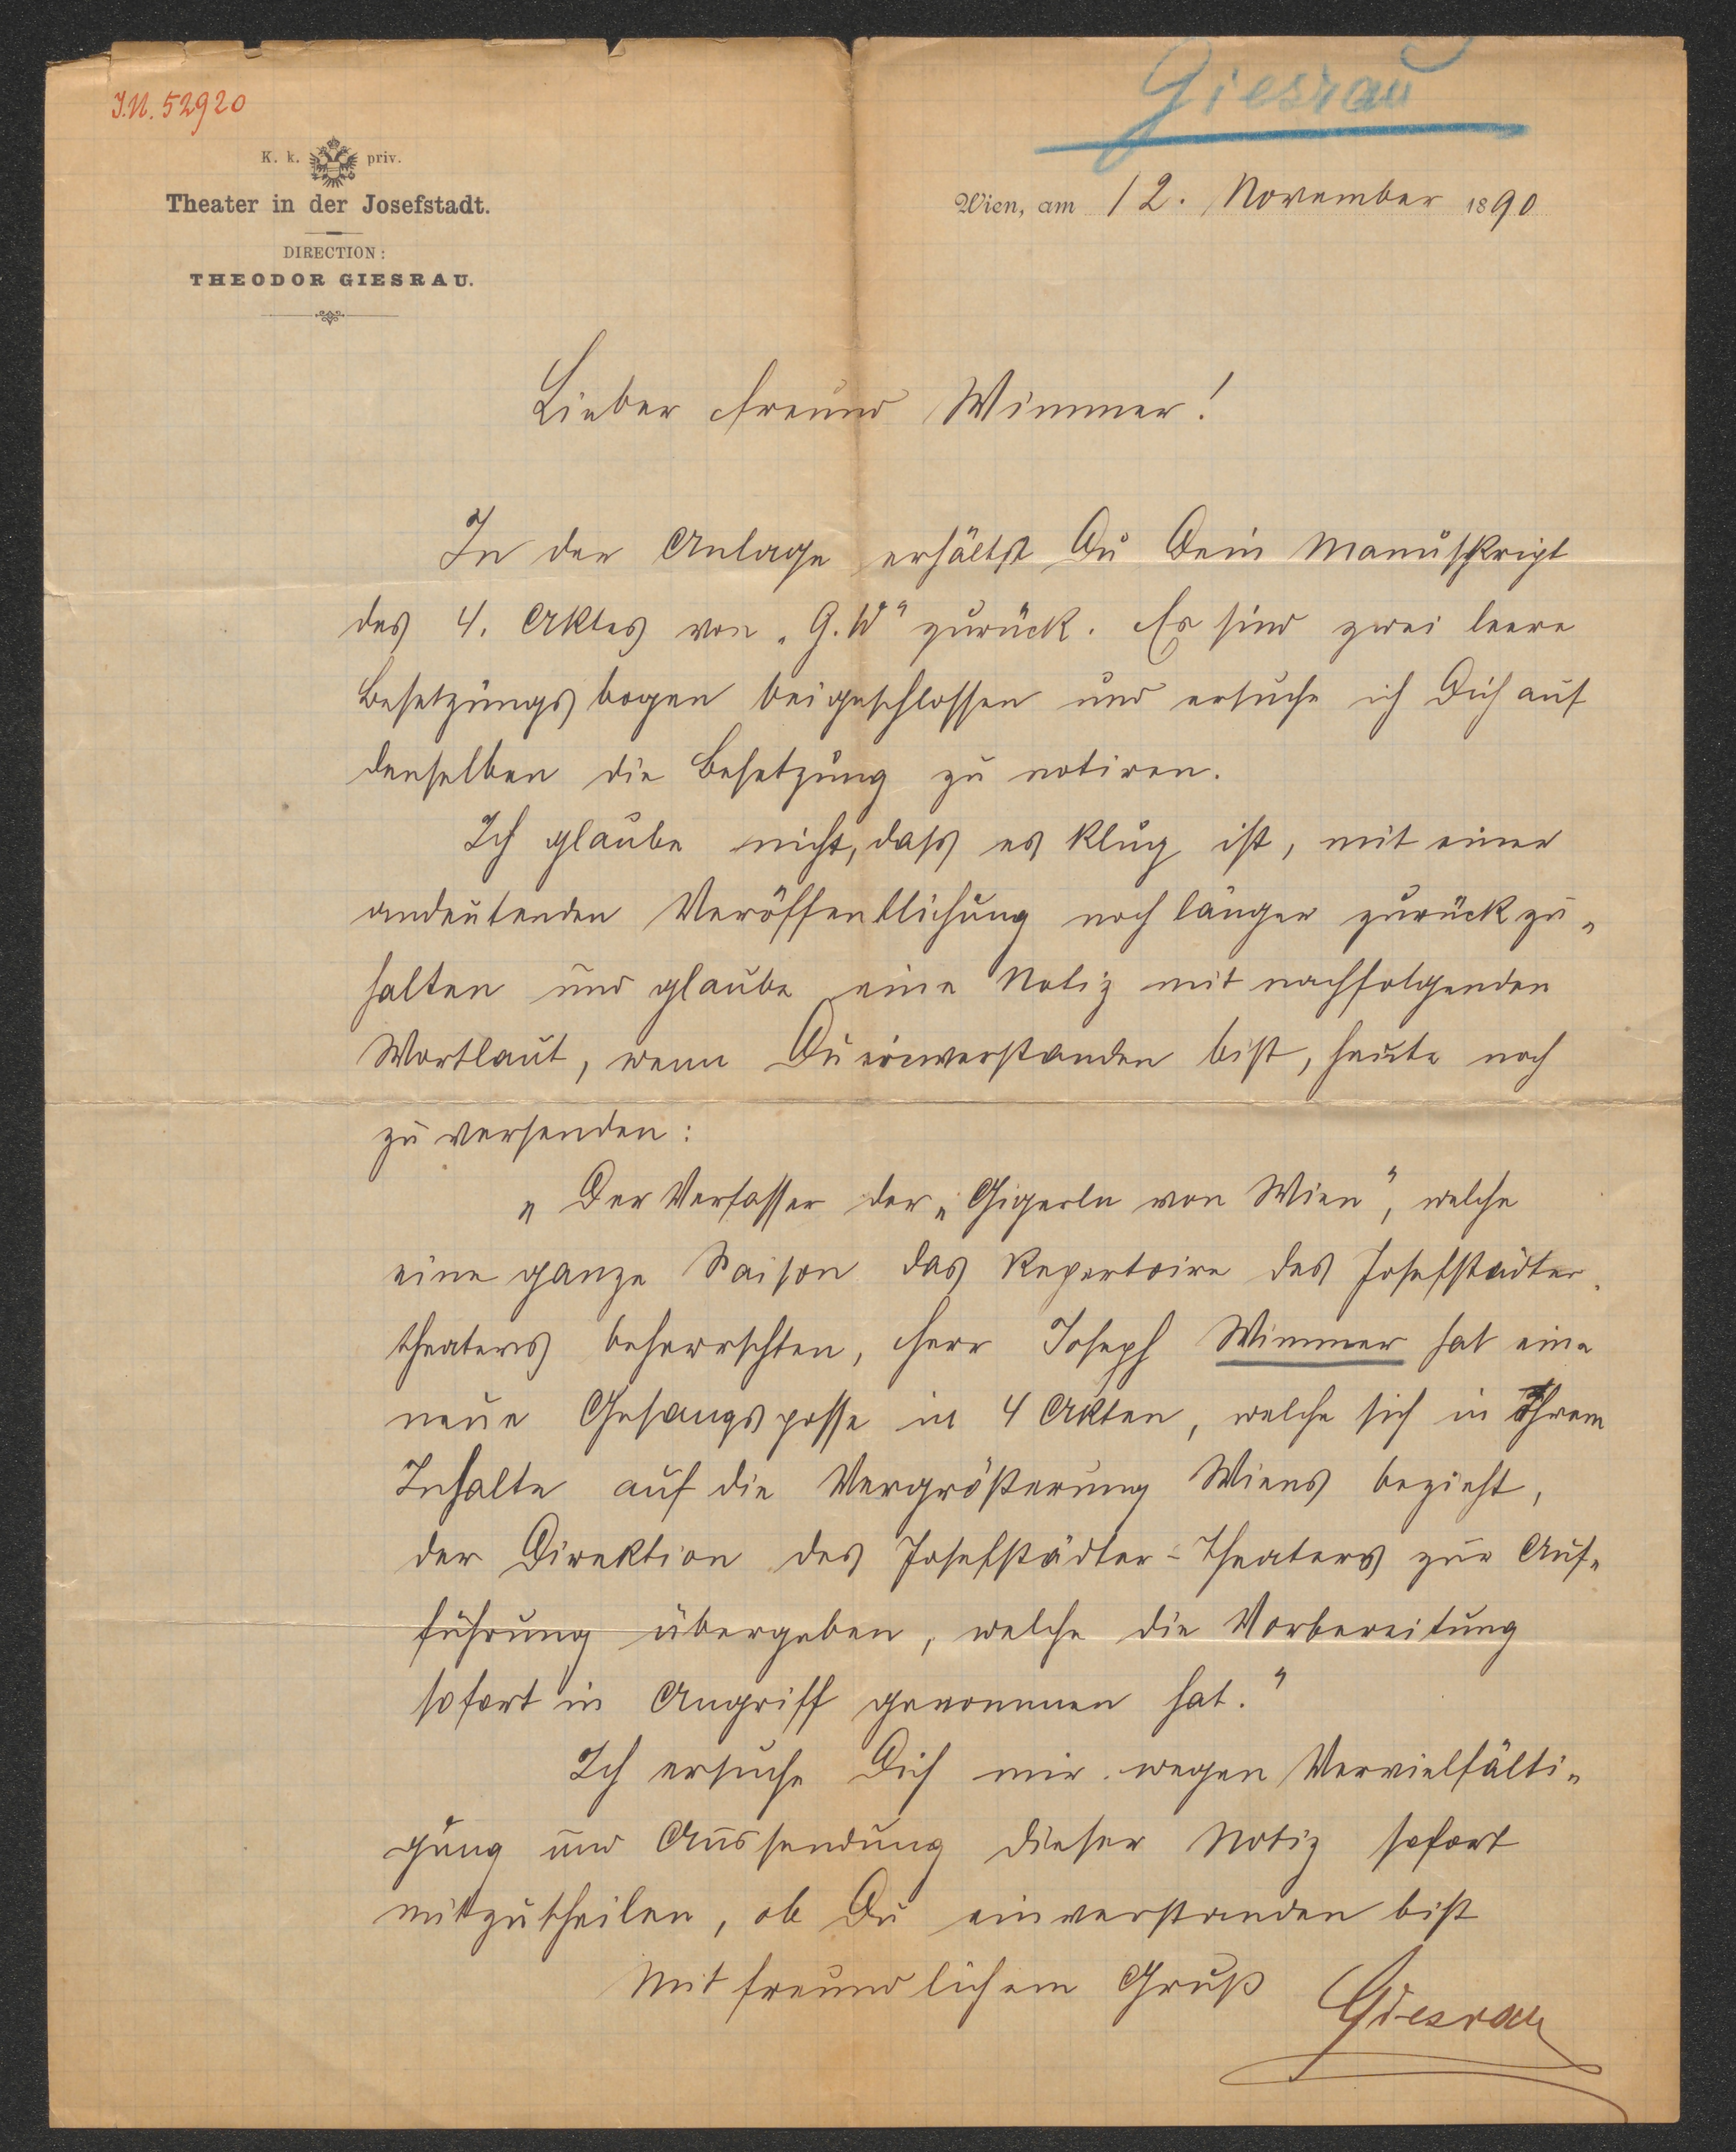 Giesrau
I.N. 52920
K. k. priv.
Theater in der Josefstadt.
DIRECTION:
THEODOR GIESRAU.
Wien, am 12. November 1890
Lieber Freund Wimmer!
In der Anlage erhältst Du Dein Manuskript
des 4. Aktes von „G. W" zurück. Es sind zwei leere
Besetzungsbogen beigeschlossen und ersuche ich Dich auf
denselben die Besetzung zu notiren.
Ich glaube nicht, dass es klug ist, mit einer
andeutenden Veröffentlichung noch länger zurückzu„
halten und glaube eine Notiz mit nachfolgenden
Wortlaut, wenn Du einverstanden bist, heute noch
zu versenden:
„Der Verfasser der „Gigerln von Wien", welche
eine ganze Saison das Repertoire des Josefstädter„
theaters beherrschten, Herr Joseph Wimmer hat eine
neue Gesangsposse in 4 Akten, welche sich in Ihrem
Inhalte auf die Vergrößerung Wiens bezieht,
der Direktion des Josefstädter-Theaters zur Auf„
führung übergeben, welche die Vorbereitung
sofort in Angriff genommen hat."
Ich ersuche Dich mir wegen Vervielfälti„
gung und Aussendung dieser Notiz sofort
mitzutheilen, ob Du einverstanden bist
Mit freundlichem Gruß
Giesrau